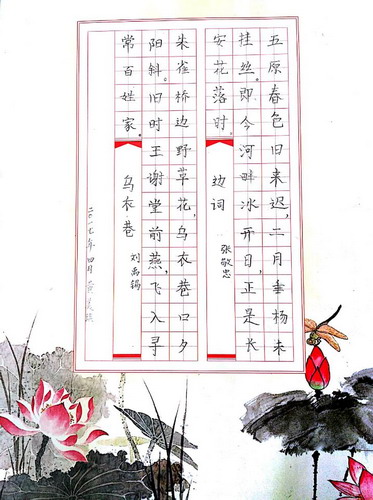 五原春色旧来迟,二月垂杨未
挂丝。即今河畔冰开日,正是长
安花落时。
边词
张敬忠
朱雀桥边野草花,乌衣巷口夕
阳斜。旧时王谢堂前燕,飞入寻
常百姓家。
乌衣巷
刘禹锡
二〇一七年四月